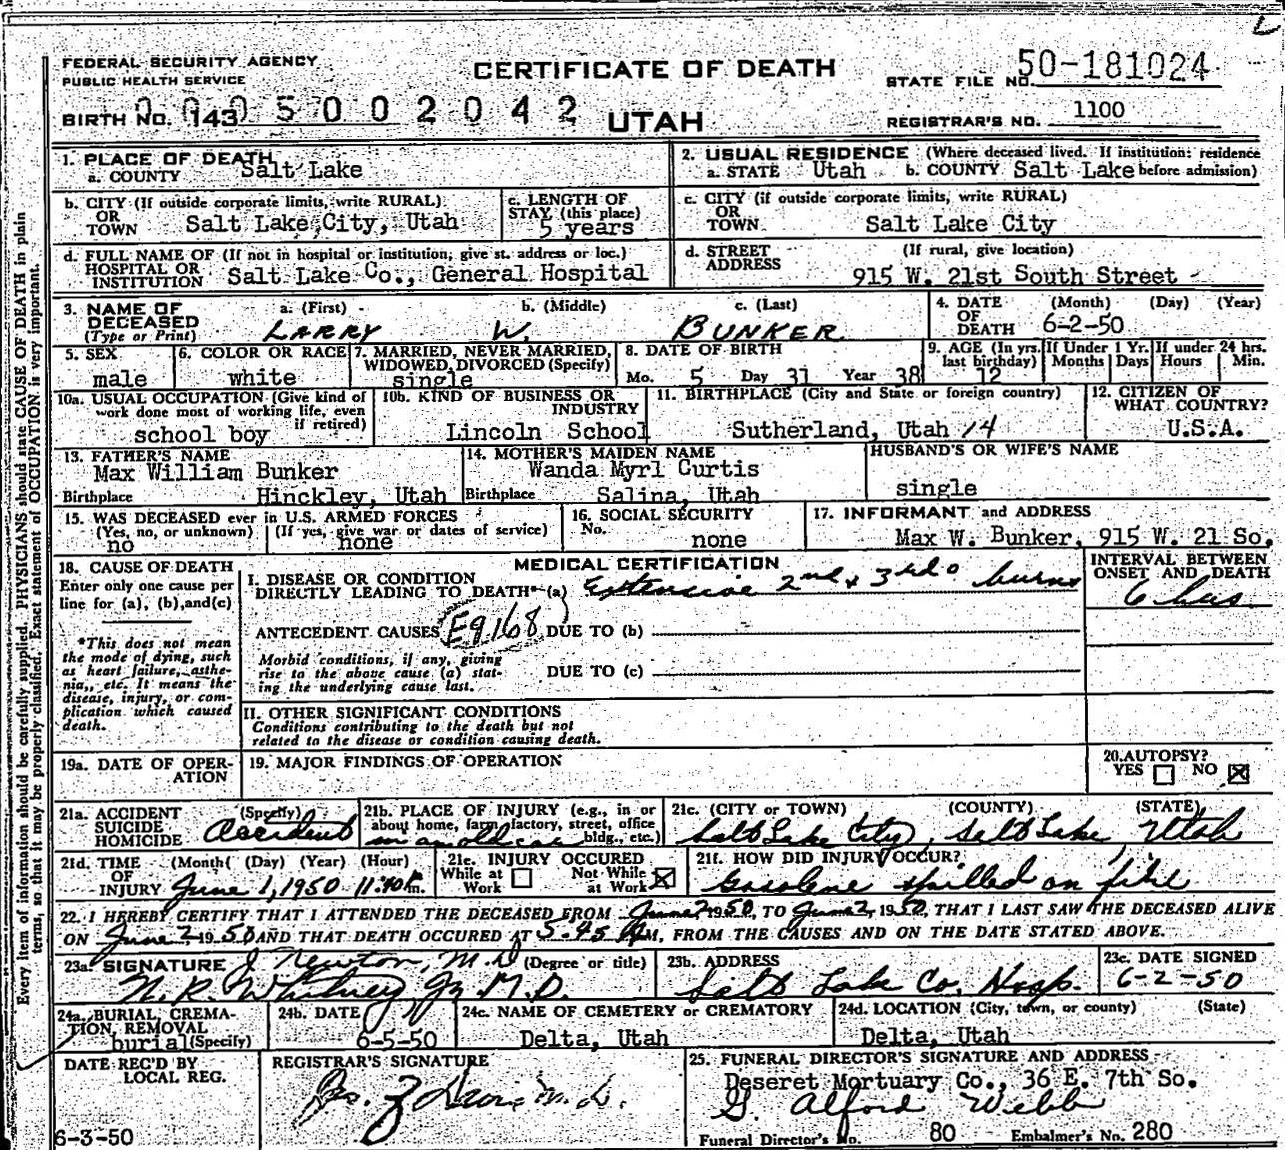 FEDERAL SECURITY AGENCY
PUBLIC HEALTH SERVICE
CERTIFICATE OF DEATH
STATE FILE NO. 50-181024
BIRTH NO. 143 5002042
UTAH
REGISTRAR'S NO. 1100
1. PLACE OF DEATH
a. COUNTY Salt Lake
2. USUAL RESIDENCE (Where deceased lived. If institution: residence before admission)
a. STATE Utah b. COUNTY Salt Lake
b. CITY (If outside corporate limits, write RURAL) OR TOWN Salt Lake City, Utah
c. LENGTH OF STAY (this place) 5 years
c. CITY (if outside corporate limits, write RURAL) OR TOWN Salt Lake City
d. FULL NAME OF (If not in hospital or institution, give st. address or loc.) HOSPITAL OR INSTITUTION Salt Lake Co., General Hospital
d. STREET ADDRESS (If rural, give location) 915 W. 21st South Street
3. NAME OF DECEASED (Type or Print)
a. (First) LARRY b. (Middle) W. c. (Last) BUNKER
4. DATE OF DEATH (Month) (Day) (Year) 6-2-50
5. SEX male
6. COLOR OR RACE white
7. MARRIED, NEVER MARRIED, WIDOWED, DIVORCED (Specify) single
8. DATE OF BIRTH Mo. 5 Day 31 Year 38
9. AGE (In yrs. last birthday) 12
If Under 1 Yr. Months Days
If under 24 hrs. Hours Min.
10a. USUAL OCCUPATION (Give kind of work done most of working life, even if retired) school boy
10b. KIND OF BUSINESS OR INDUSTRY Lincoln School
11. BIRTHPLACE (City and State or foreign country) Sutherland, Utah 14
12. CITIZEN OF WHAT COUNTRY? U.S.A.
13. FATHER'S NAME Max William Bunker
Birthplace Hinckley, Utah
14. MOTHER'S MAIDEN NAME Wanda Myrl Curtis
Birthplace Salina, Utah
HUSBAND'S OR WIFE'S NAME single
15. WAS DECEASED ever in U.S. ARMED FORCES
(Yes, no, or unknown) no
(If yes, give war or dates of service) none
16. SOCIAL SECURITY No. none
17. INFORMANT and ADDRESS Max W. Bunker, 915 W. 21 So.
18. CAUSE OF DEATH
Enter only one cause per line for (a), (b), and (c)
*This does not mean the mode of dying, such as heart failure, asthenia, etc. It means the disease, injury, or complication which caused death.
MEDICAL CERTIFICATION
I. DISEASE OR CONDITION DIRECTLY LEADING TO DEATH* (a) Extensive 2nd & 3rd o burns
INTERVAL BETWEEN ONSET AND DEATH 6 hrs.
ANTECEDENT CAUSES E9168 DUE TO (b)
Morbid conditions, if any, giving rise to the above cause (a) stating the underlying cause last.
DUE TO (c)
II. OTHER SIGNIFICANT CONDITIONS
Conditions contributing to the death but not related to the disease or condition causing death.
19a. DATE OF OPERATION
19. MAJOR FINDINGS OF OPERATION
20. AUTOPSY? YES NO
21a. ACCIDENT SUICIDE HOMICIDE (Specify) Accident
21b. PLACE OF INJURY (e.g., in or about home, farm, factory, street, office bldg., etc.) in an old car
21c. (CITY or TOWN) (COUNTY) (STATE) Salt Lake City, Salt Lake, Utah
21d. TIME OF INJURY (Month) (Day) (Year) (Hour) June 1, 1950 11:40 P m.
21e. INJURY OCCURED While at Work Not While at Work
21f. HOW DID INJURY OCCUR? Gasolene spilled on fire
22. I HEREBY CERTIFY THAT I ATTENDED THE DECEASED FROM June 2, 1950, TO June 2, 1950, THAT I LAST SAW THE DECEASED ALIVE
ON June 2, 1950 AND THAT DEATH OCCURED AT 5:45 AM, FROM THE CAUSES AND ON THE DATE STATED ABOVE.
23a. SIGNATURE J Newton, M.D (Degree or title)
N. R. Whitney Jr M.D.
23b. ADDRESS Salt Lake Co. Hosp.
23c. DATE SIGNED 6-2-50
24a. BURIAL, CREMATION, REMOVAL (Specify) burial
24b. DATE 6-5-50
24c. NAME OF CEMETERY or CREMATORY Delta, Utah
24d. LOCATION (City, town, or county) (State) Delta, Utah
DATE REC'D BY LOCAL REG. 6-3-50
REGISTRAR'S SIGNATURE M.D.
25. FUNERAL DIRECTOR'S SIGNATURE AND ADDRESS
Deseret Mortuary Co., 36 E. 7th So.
G. Alford Webb
Funeral Director's No. 80 Embalmer's No. 280
Every item of information should be carefully supplied. PHYSICIANS should state CAUSE OF DEATH in plain
terms, so that it may be properly classified. Exact statement of OCCUPATION is very important.